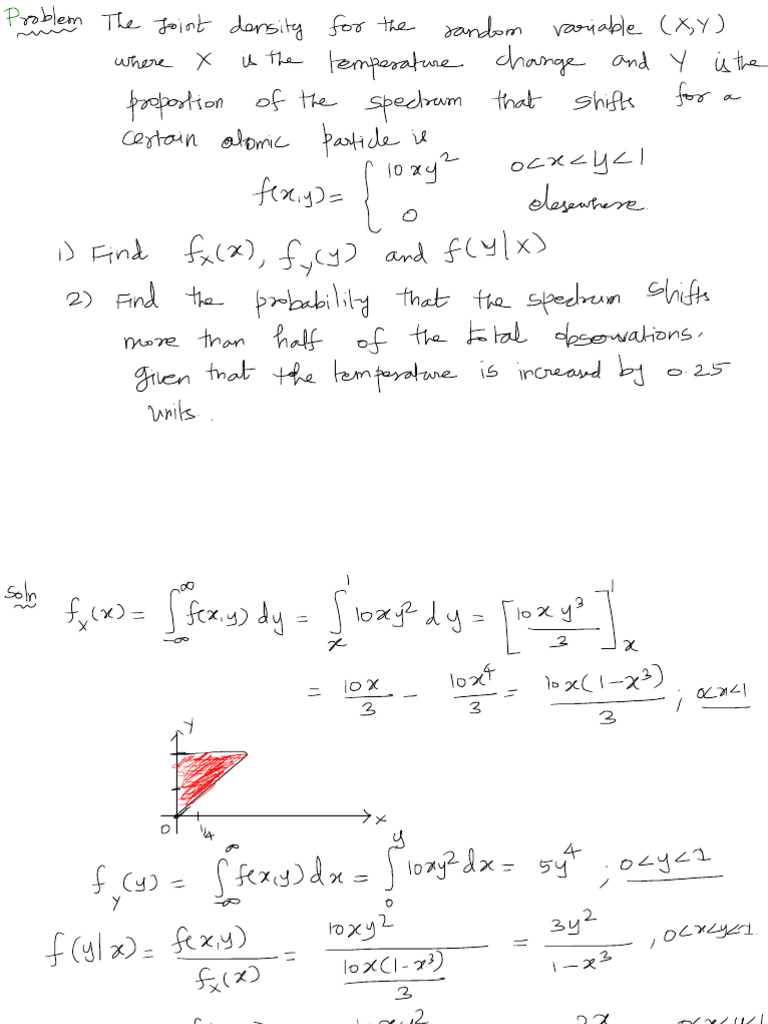 Problem The Joint density for the random variable (X,Y)
where X is the temperature change and Y is the
proportion of the spectrum that shifts for a
certain atomic particle is
f(x,y) = { 10xy² 0<x<y<1
0 elsewhere.
1) Find f_X(x), f_Y(y) and f(Y|X)
2) Find the probability that the spectrum shifts
more than half of the total observations,
given that the temperature is increased by 0.25
units.
Soln f_X(x) = ∫_{-∞}^{∞} f(x,y) dy = ∫_x^1 10xy² dy = [10xy³/3]_x^1
= 10x/3 - 10x⁴/3 = 10x(1-x³)/3 ; 0<x<1
Y
0 1/4 x
f_Y(y) = ∫_{-∞}^{∞} f(x,y) dx = ∫_0^y 10xy² dx = 5y⁴ ; 0<y<1
f(y|x) = f(x,y)/f_X(x) = 10xy²/(10x(1-x³)/3) = 3y²/(1-x³) , 0<x<y<1